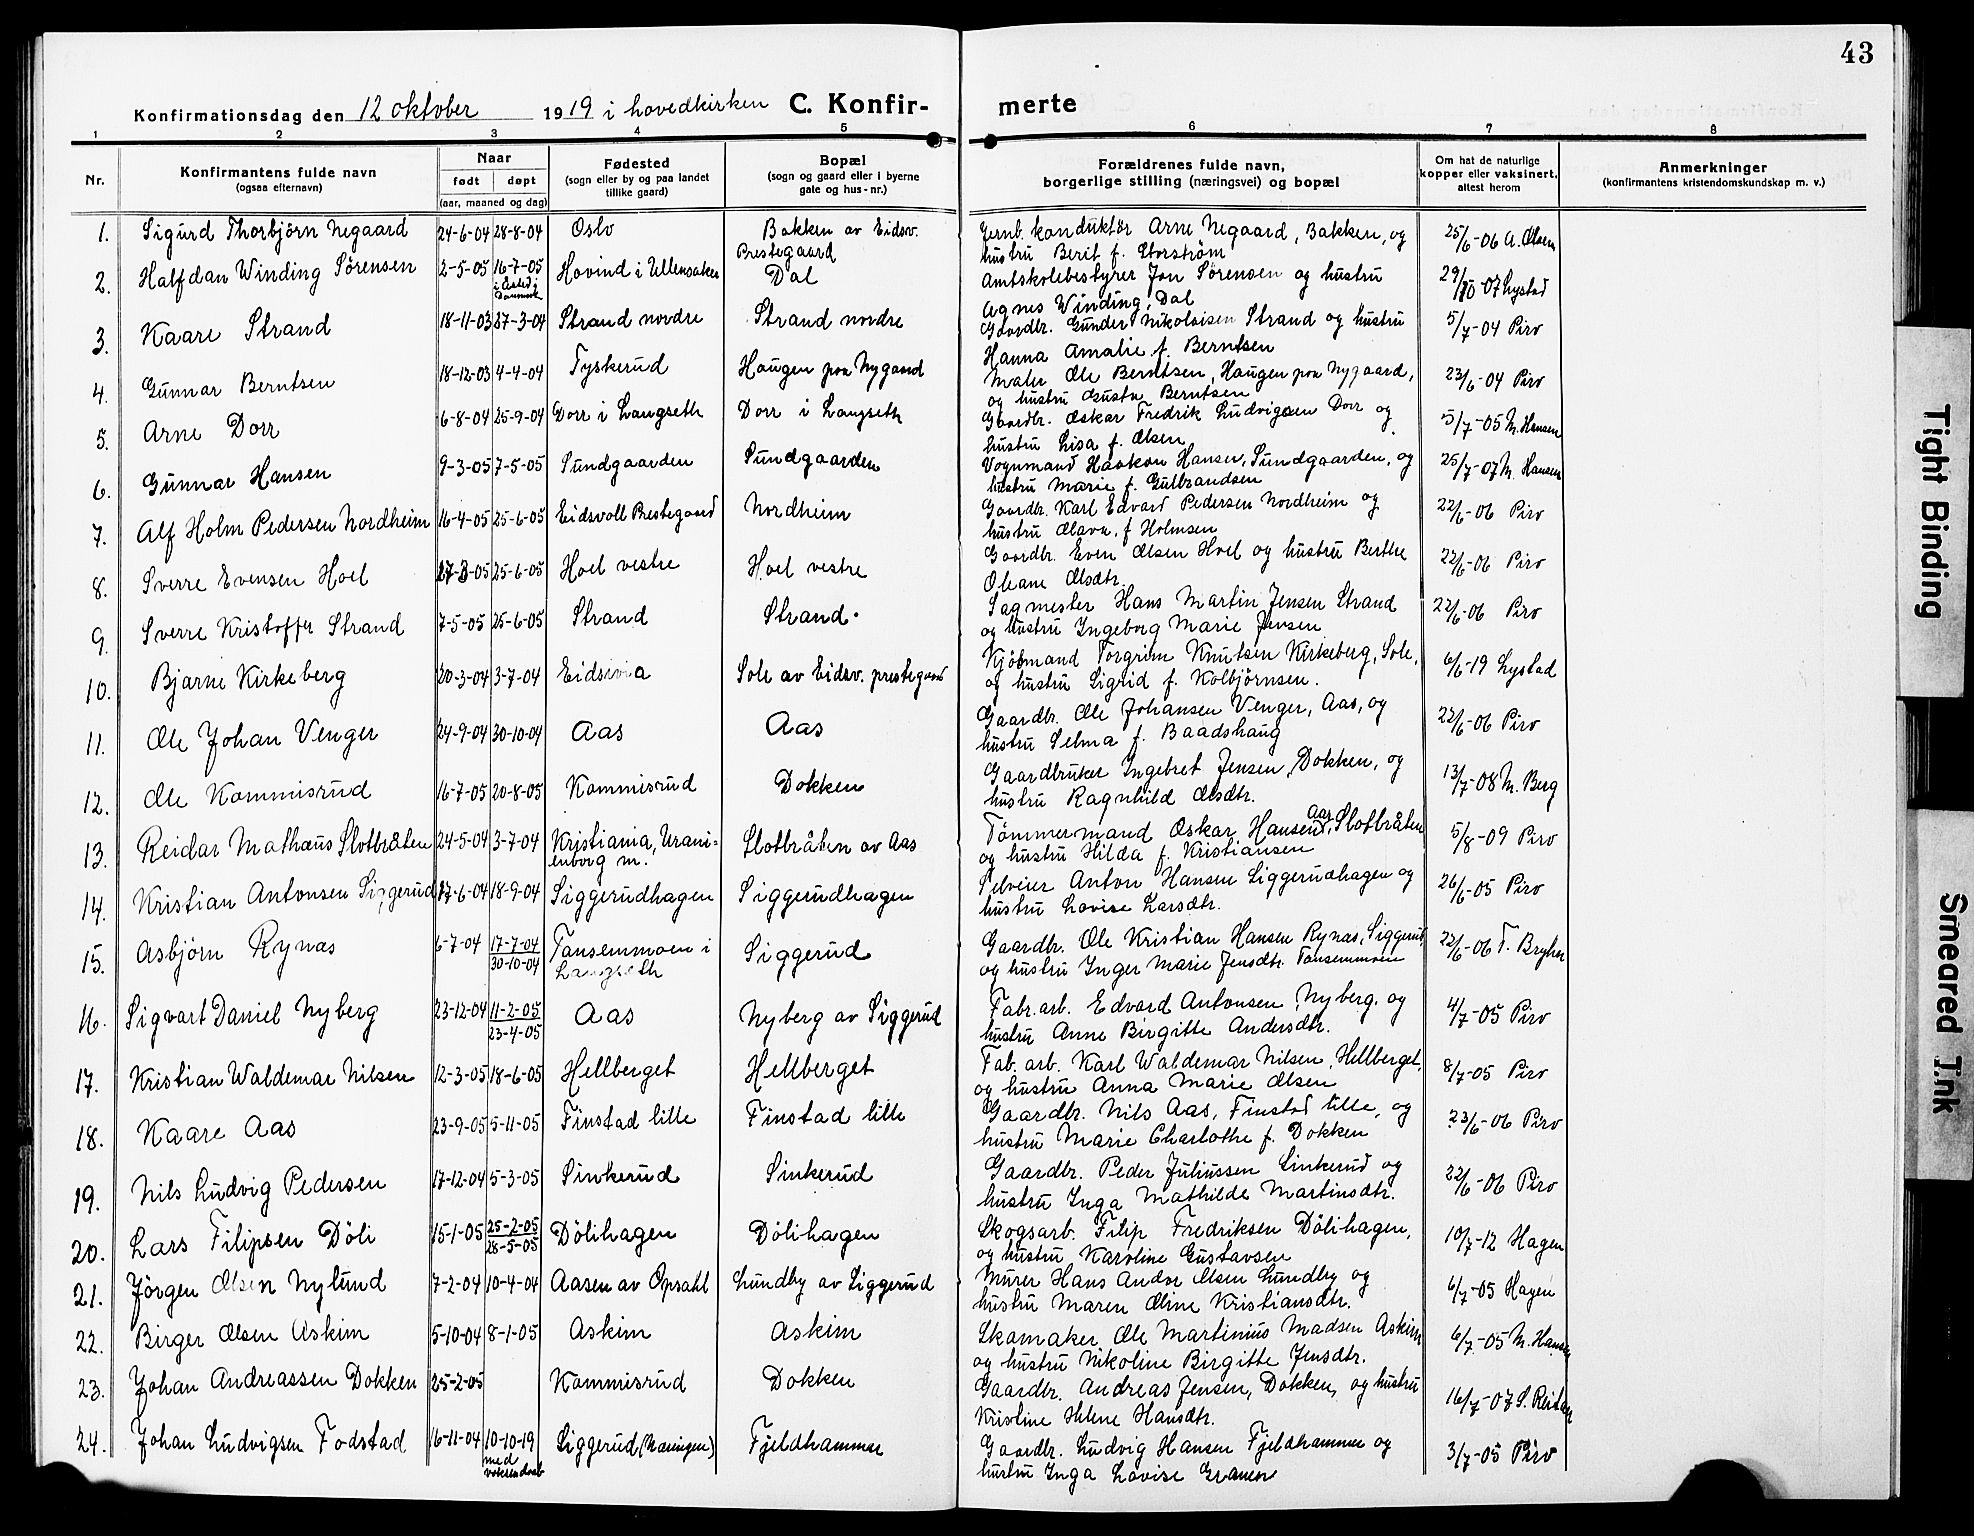 43
Konfirmationsdag den 12 oktober 1919 i hovedkirken C. Konfir-
merte
1 2 3 4 5 6 7 8
Nr.
Konfirmantens fulde navn
(ogsaa efternavn)
Naar
født døpt
(aar, maaned og dag)
Fødested
(sogn eller by og paa landet
tillike gaard)
Bopæl
(sogn og gaard eller i byerne
gate og hus-nr.)
Forældrenes fulde navn,
borgerlige stilling (næringsvei) og bopæl
Om hat de naturlige
kopper eller vaksinert,
attest herom
Anmerkninger
(konfirmantens kristendomskundskap m. v.)
1. Sigurd Thorbjörn Negaard 24-6-04 28-8-04 Oslo Bakken av Eidsv. Prestegaard
Jernb. konduktör Arne Negaard, Bakken, og 25/6-06 A. Olsen
hustru Berit f. Storström
2. Halfdan Winding Sørensen 2-5-05 16-7-05 Hovind i Ullensaker Dal
Amtskolebestyrer Jon Sørensen og hustru 29/10-07 Lystad
Agnes Winding, Dal
3. Kaare Strand 18-11-03 27-3-04 Strand nordre Strand nordre
Gaardbr. Gunder Nikolaisen Strand og hustru 5/7-04 Piro
Hanna Amalie f. Berntsen
4. Gunnar Berntsen 18-12-03 4-4-04 Tyskerud Haugen paa Nygaard
Maler Ole Berntsen, Haugen paa Nygaard, 23/6-04 Piro
og hustru Gusta Berntsen
5. Arne Dorr 6-8-04 25-9-04 Dorr i Langseth Dorr i Langseth
Gaardbr. Oskar Fredrik Ludvigsen Dorr og 5/7-05 M. Hansen
hustru Lisa f. Olsen
6. Gunnar Hansen 9-3-05 7-5-05 Sundgaarden Sundgaarden
Vognmand Haakon Hansen, Sundgaarden, og 25/7-07 M. Hansen
hustru Marie f. Gulbrandsen
7. Alf Holm Pedersen Nordheim 16-4-05 25-6-05 Eidsvoll Prestegaard Nordheim
Gaardbr. Karl Edvard Pedersen Nordheim og 22/6-06 Piro
hustru Olava f. Holmsen
8. Sverre Evensen Hoel 27-3-05 25-6-05 Hoel vestre Hoel vestre
Gaardbr. Even Olsen Hoel og hustru Berthe 22/6-06 Piro
Oleane Olsdtr.
9. Sverre Kristoffer Strand 7-5-05 25-6-05 Strand Strand.
Sagmester Hans Martin Jensen Strand 22/6-06 Piro
og hustru Ingeborg Marie Jensen
10. Bjarne Kirkeberg 20-3-04 3-7-04 Eidsivia Sole av Eidsv. prestegaard
Kjöbmand Torgrim Knutsen Kirkeberg, Sole, 6/6-19 Lystad
og hustru Sigrid f. Kolbjörnsen.
11. Ole Johan Venger 24-9-04 30-10-04 Aas Aas
Gaardbr. Ole Johansen Venger, Aas, og 22/6-06 Piro
hustru Selma f. Baadshaug
12. Ole Kommisrud 16-7-05 20-8-05 Kommisrud Dokken
Gaardbruker Ingebret Jensen, Dokken, og 13/7-08 M. Berg
hustru Ragnhild Olsdtr.
13. Reidar Mathæus Slotbråten 24-5-04 3-7-04 Kristiania, Urani-
enborg m. Slotbråten av Aas
Tömmermand Oskar Hansen, Aas, Slotbråten 5/8-09 Piro
og hustru Hilda f. Kristiansen
14. Kristian Antonsen Siggerud 17-6-04 18-9-04 Siggerudhagen Siggerudhagen
Selveier Anton Hansen Siggerudhagen og 26/6-05 Piro
hustru Lovise Larsdtr.
15. Asbjörn Rynas 6-7-04 17-7-04 30-10-04 Tansemmoen i
Langseth Siggerud
Gaardbr. Ole Kristian Hansen Rynas, Siggerud 22/6-06 T. Bryhn
og hustru Inger Marie Jensdtr. Tansemmoen
16. Sigvart Daniel Nyberg 23-12-04 11-2-05 23-4-05 Aas Nyberg av Siggerud
Fabr. arb. Edvard Antonsen Nyberg. og 4/7-05 Piro
hustru Anne Birgitte Andersdtr.
17. Kristian Waldemar Nilsen 12-3-05 18-6-05 Hellberget Hellberget
Fab. arb. Karl Waldemar Nilsen, Hellberget, 8/7-05 Piro
og hustru Anna Marie Olsen
18. Kaare Aas 23-9-05 5-11-05 Finstad lille Finstad lille
Gaardbr. Nils Aas, Finstad lille, og 23/6-06 Piro
hustru Marie Charlothe f. Dokken
19. Nils Ludvig Pedersen 17-12-04 5-3-05 Sinkerud Sinkerud
Gaardbr. Peder Juliussen Sinkerud og 22/6-06 Piro
hustru Inga Mathilde Martinsdtr.
20. Lars Filipsen Döli 15-1-05 25-2-05 28-5-05 Dölihagen Dölihagen
Skogsarb. Filip Fredriksen Dölihagen, 10/7-12 Hagen
og hustru Karoline Gustavsen
21. Jörgen Olsen Nylund 7-2-04 10-4-04 Aasen av Opsahl Lundby av Siggerud
Murer Hans Andor Olsen Lundby og 6/7-05 Hagen
hustru Maren Oline Kristiansdtr.
22. Birger Olsen Askim 5-10-04 8-1-05 Askim Askim
Skomaker Ole Martinius Madsen Askim 6/7-05 M. Hansen
og hustru Nikoline Birgitte Jensdtr.
23. Johan Andreassen Dokken 25-2-05 Kommisrud Dokken
Gaardbr. Andreas Jensen, Dokken, og hustru 16/7-07 S. Reitan
Kristine Helene Hansdtr.
24. Johan Ludvigsen Fodstad 16-11-04 10-10-19 Siggerud Fjeldhammer
Gaardbr. Ludvig Hansen Fjeldhammer og 3/7-05 Piro
hustru Inga Lovise Granen
Tight Binding
Smeared Ink